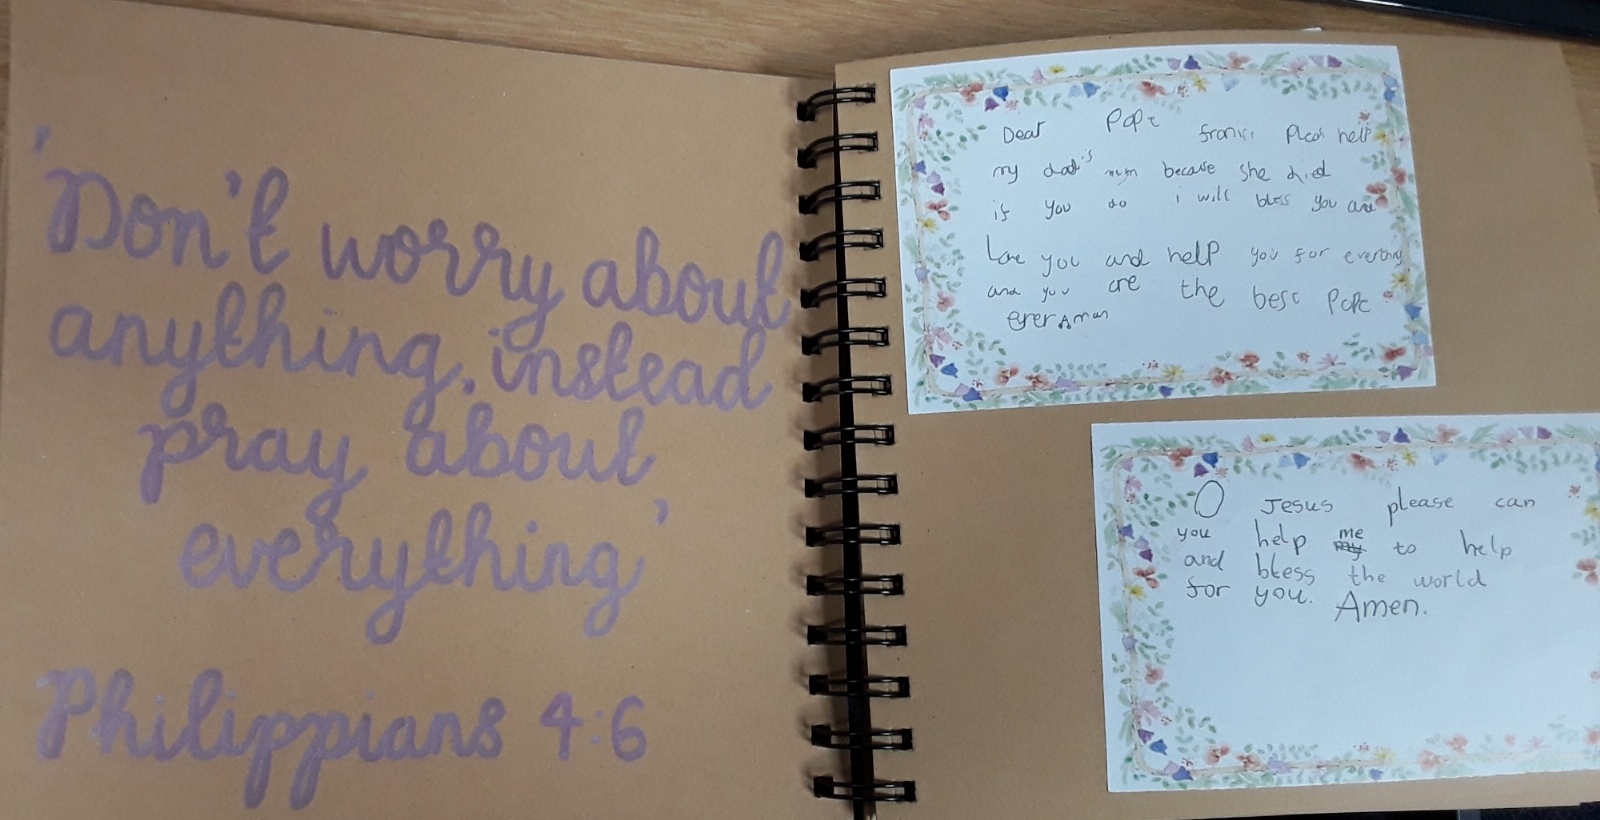 'Don't worry about
anything, instead
pray about
everything'
Philippians 4:6
Dear Pope franis Pleas help
my dad's mum because she died
if you do i will bless you and
Love you and help you for everthing
and you are the best Pope
ever Aman
O Jesus please can
you help me to help
and bless the world
for you. Amen.